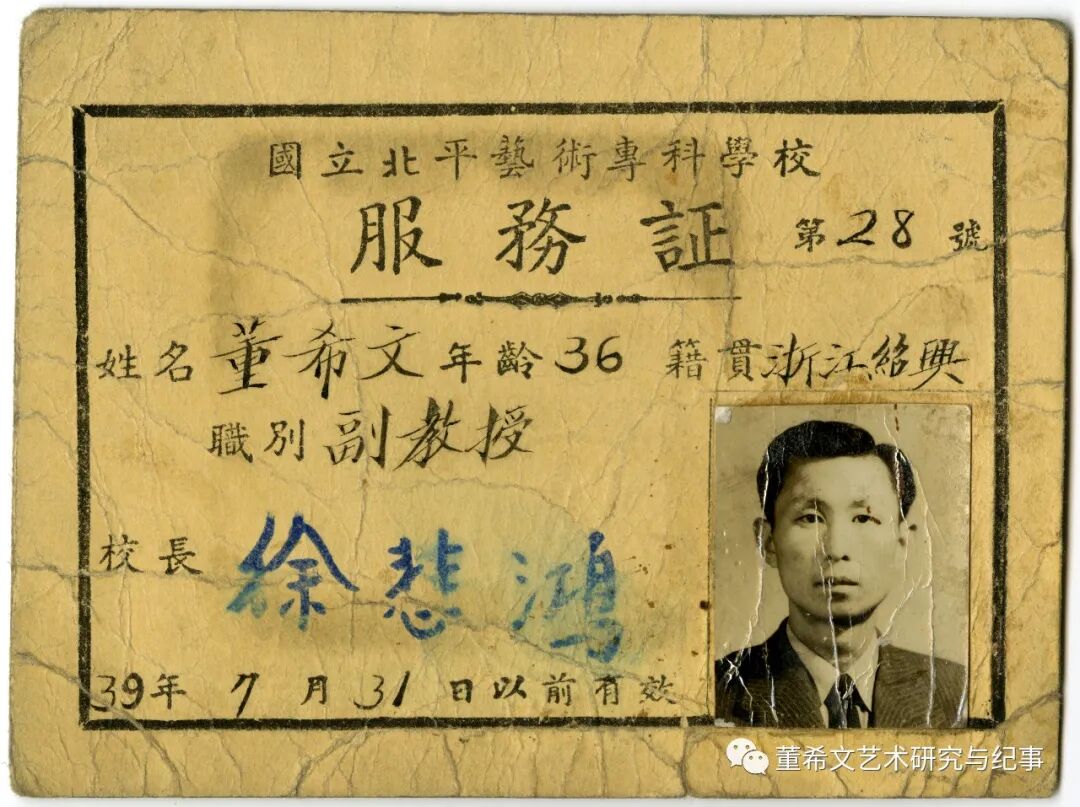 國立北平藝術專科學校
服務証 第28號
姓名董希文年齡36 籍貫浙江紹興
職別副教授
校長 徐悲鴻
39年7月31日以前有效
董希文艺术研究与纪事